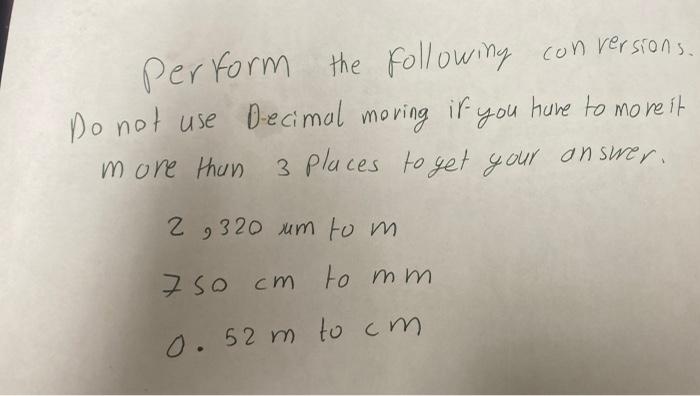 Perform the following conversions.
Do not use Decimal moving if you have to move it
more than 3 places to get your answer.
2,320 µm to m
750 cm to mm
0.52 m to cm